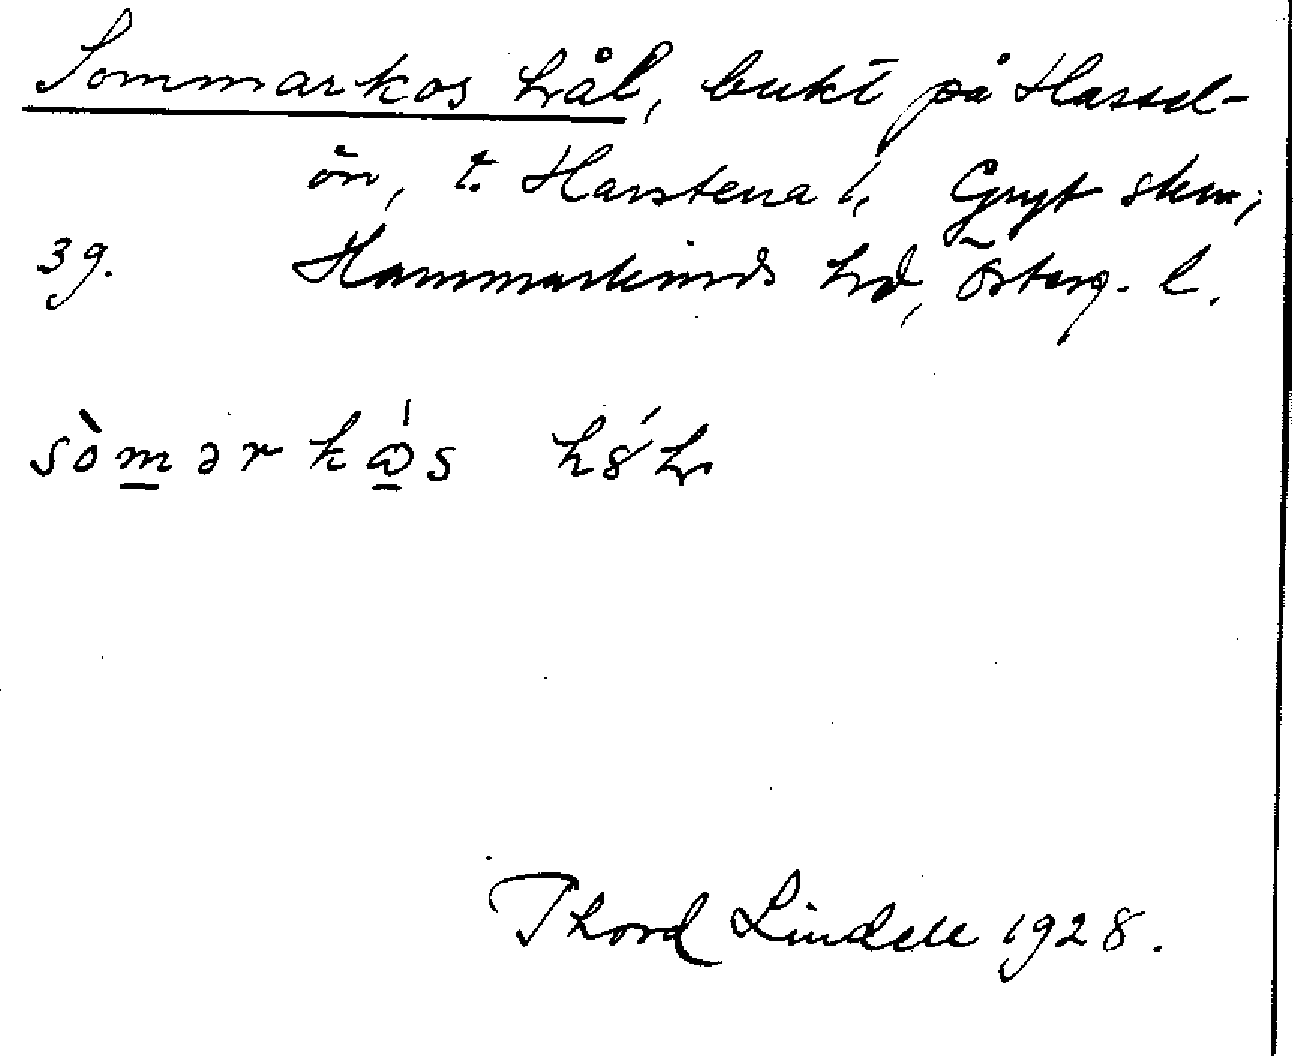 Sommarkos hål, bukt på Hassel-
ön, t. Harstena i, Gryt skn,
39. Hammarkinds hd, Österg. l.
sòmərkɷ́s
Thord Lindell 1928.